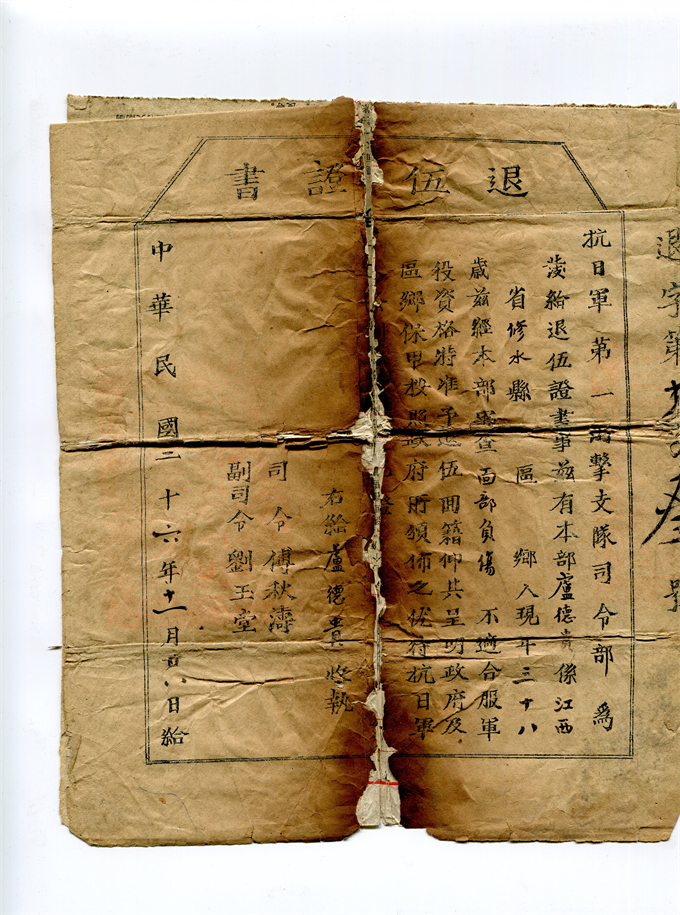 退伍證書
退字第 號
抗日軍第一游擊支隊司令部為
發給退伍證書事茲有本部盧德貴係江西
省修水縣 區 鄉人現年三十八
歲茲經本部審查面部負傷 不適合服軍
役資格特准予退伍回籍仰其呈明政府及
區鄉保甲按照政府所頒佈之优待抗日軍
右給盧德貴收執
司令傅秋濤
副司令劉玉堂
中華民國二十六年十一月 八日給